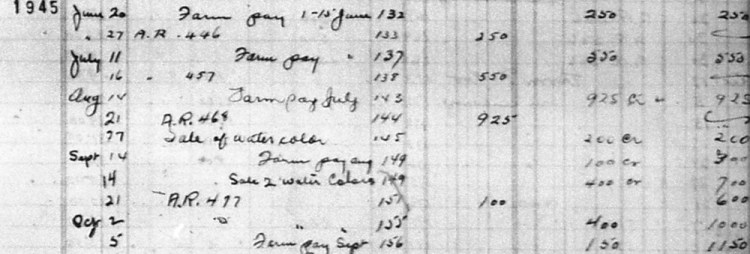 1945 June 20 Farm pay 1-15 June 132 250 250
" 27 A.R. 446 133 250
July 11 Farm pay " 137 550 550
16 " 457 138 550
Aug 14 Farm pay July 143 925 cr 925
21 A.R. 469 144 925
27 Sale of water color 145 200 cr 200
Sept 14 Farm pay aug 149 100 cr 300
14 Sale 2 water Colors 149 400 cr 700
21 A.R. 477 151 100 600
Oct 2 " " 155 400 1000
5 Farm pay Sept 156 150 1150